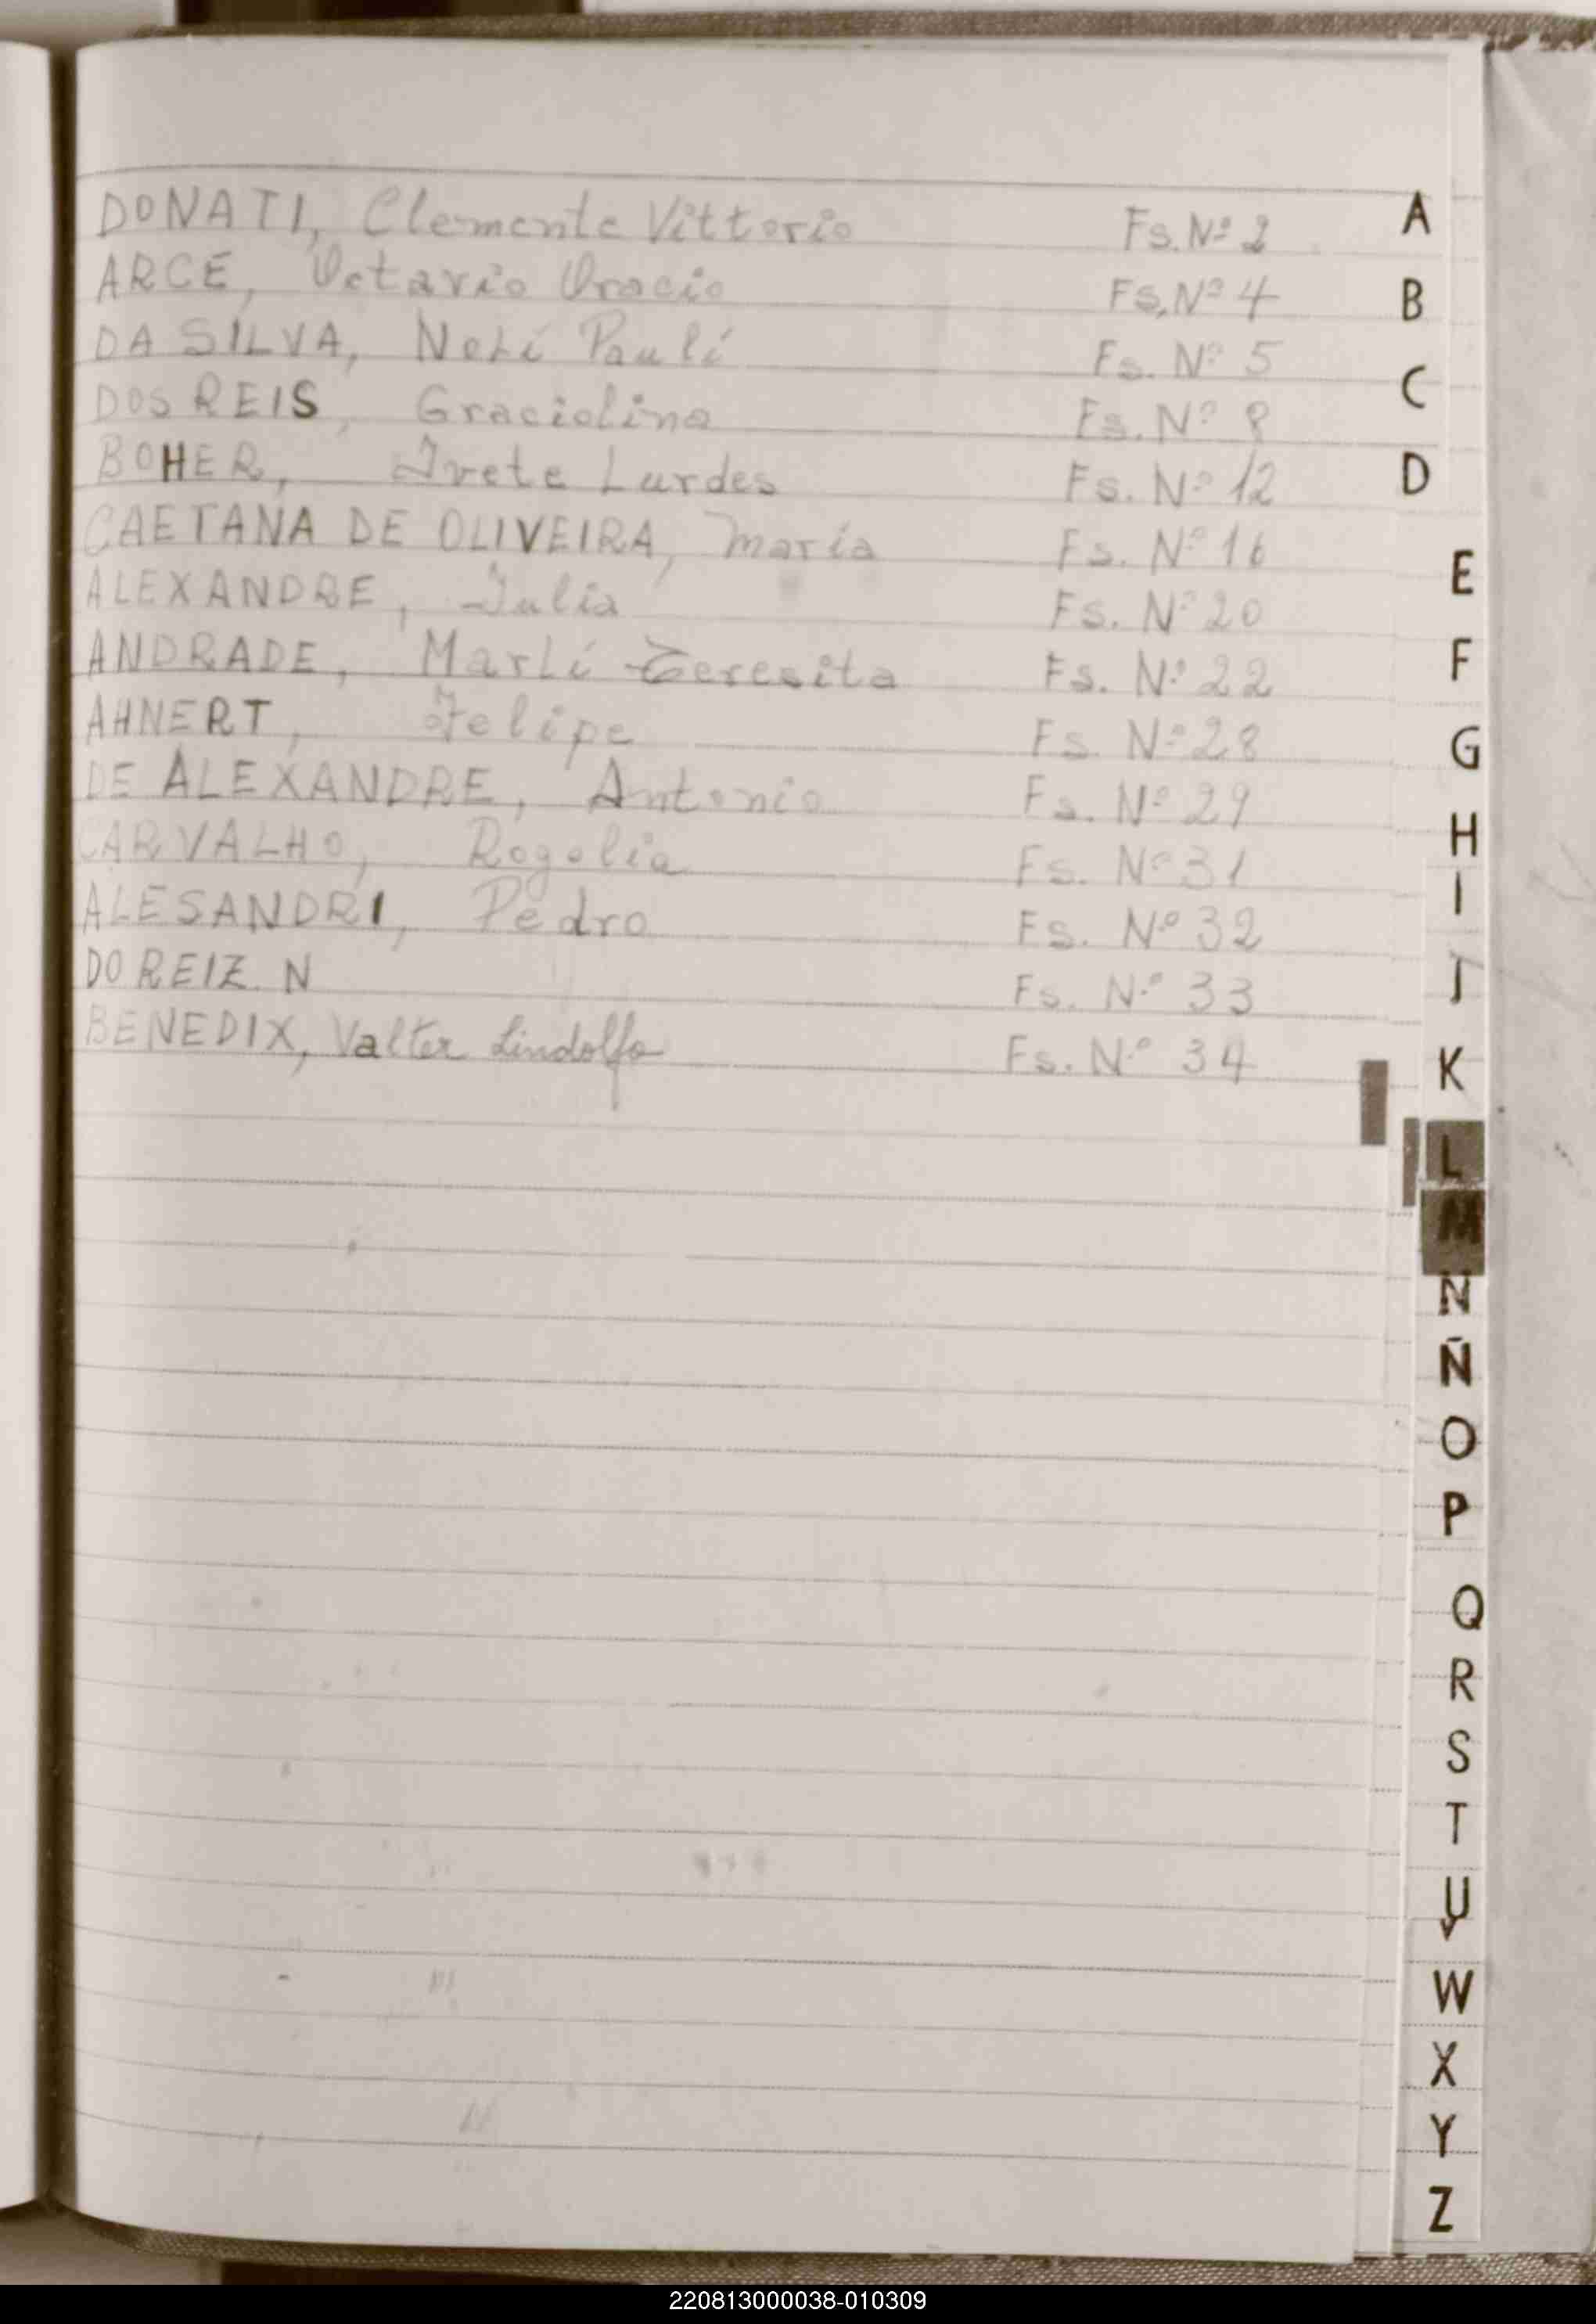 DONATI, Clemente Vittorio Fs. Nº 2
ARCE, Octavio Oracio Fs. Nº 4
DA SILVA, Nelí Paulí Fs. Nº 5
DOS REIS, Graciolina Fs. Nº 8
BOHER, Ivete Lurdes Fs. Nº 12
CAETANA DE OLIVEIRA, María Fs. Nº 16
ALEXANDRE, Julia Fs. Nº 20
ANDRADE, Marlí Teresita Fs. Nº 22
AHNERT, Felipe Fs. Nº 28
DE ALEXANDRE, Antonio Fs. Nº 29
CARVALHO, Rogelia Fs. Nº 31
ALESANDRI, Pedro Fs. Nº 32
DO REIZ N Fs. Nº 33
BENEDIX, Valter Lindolfo Fs. Nº 34
A
B
C
D
E
F
G
H
I
J
K
L
M
N
Ñ
O
P
Q
R
S
T
U
V
W
X
Y
Z
220813000038-010309